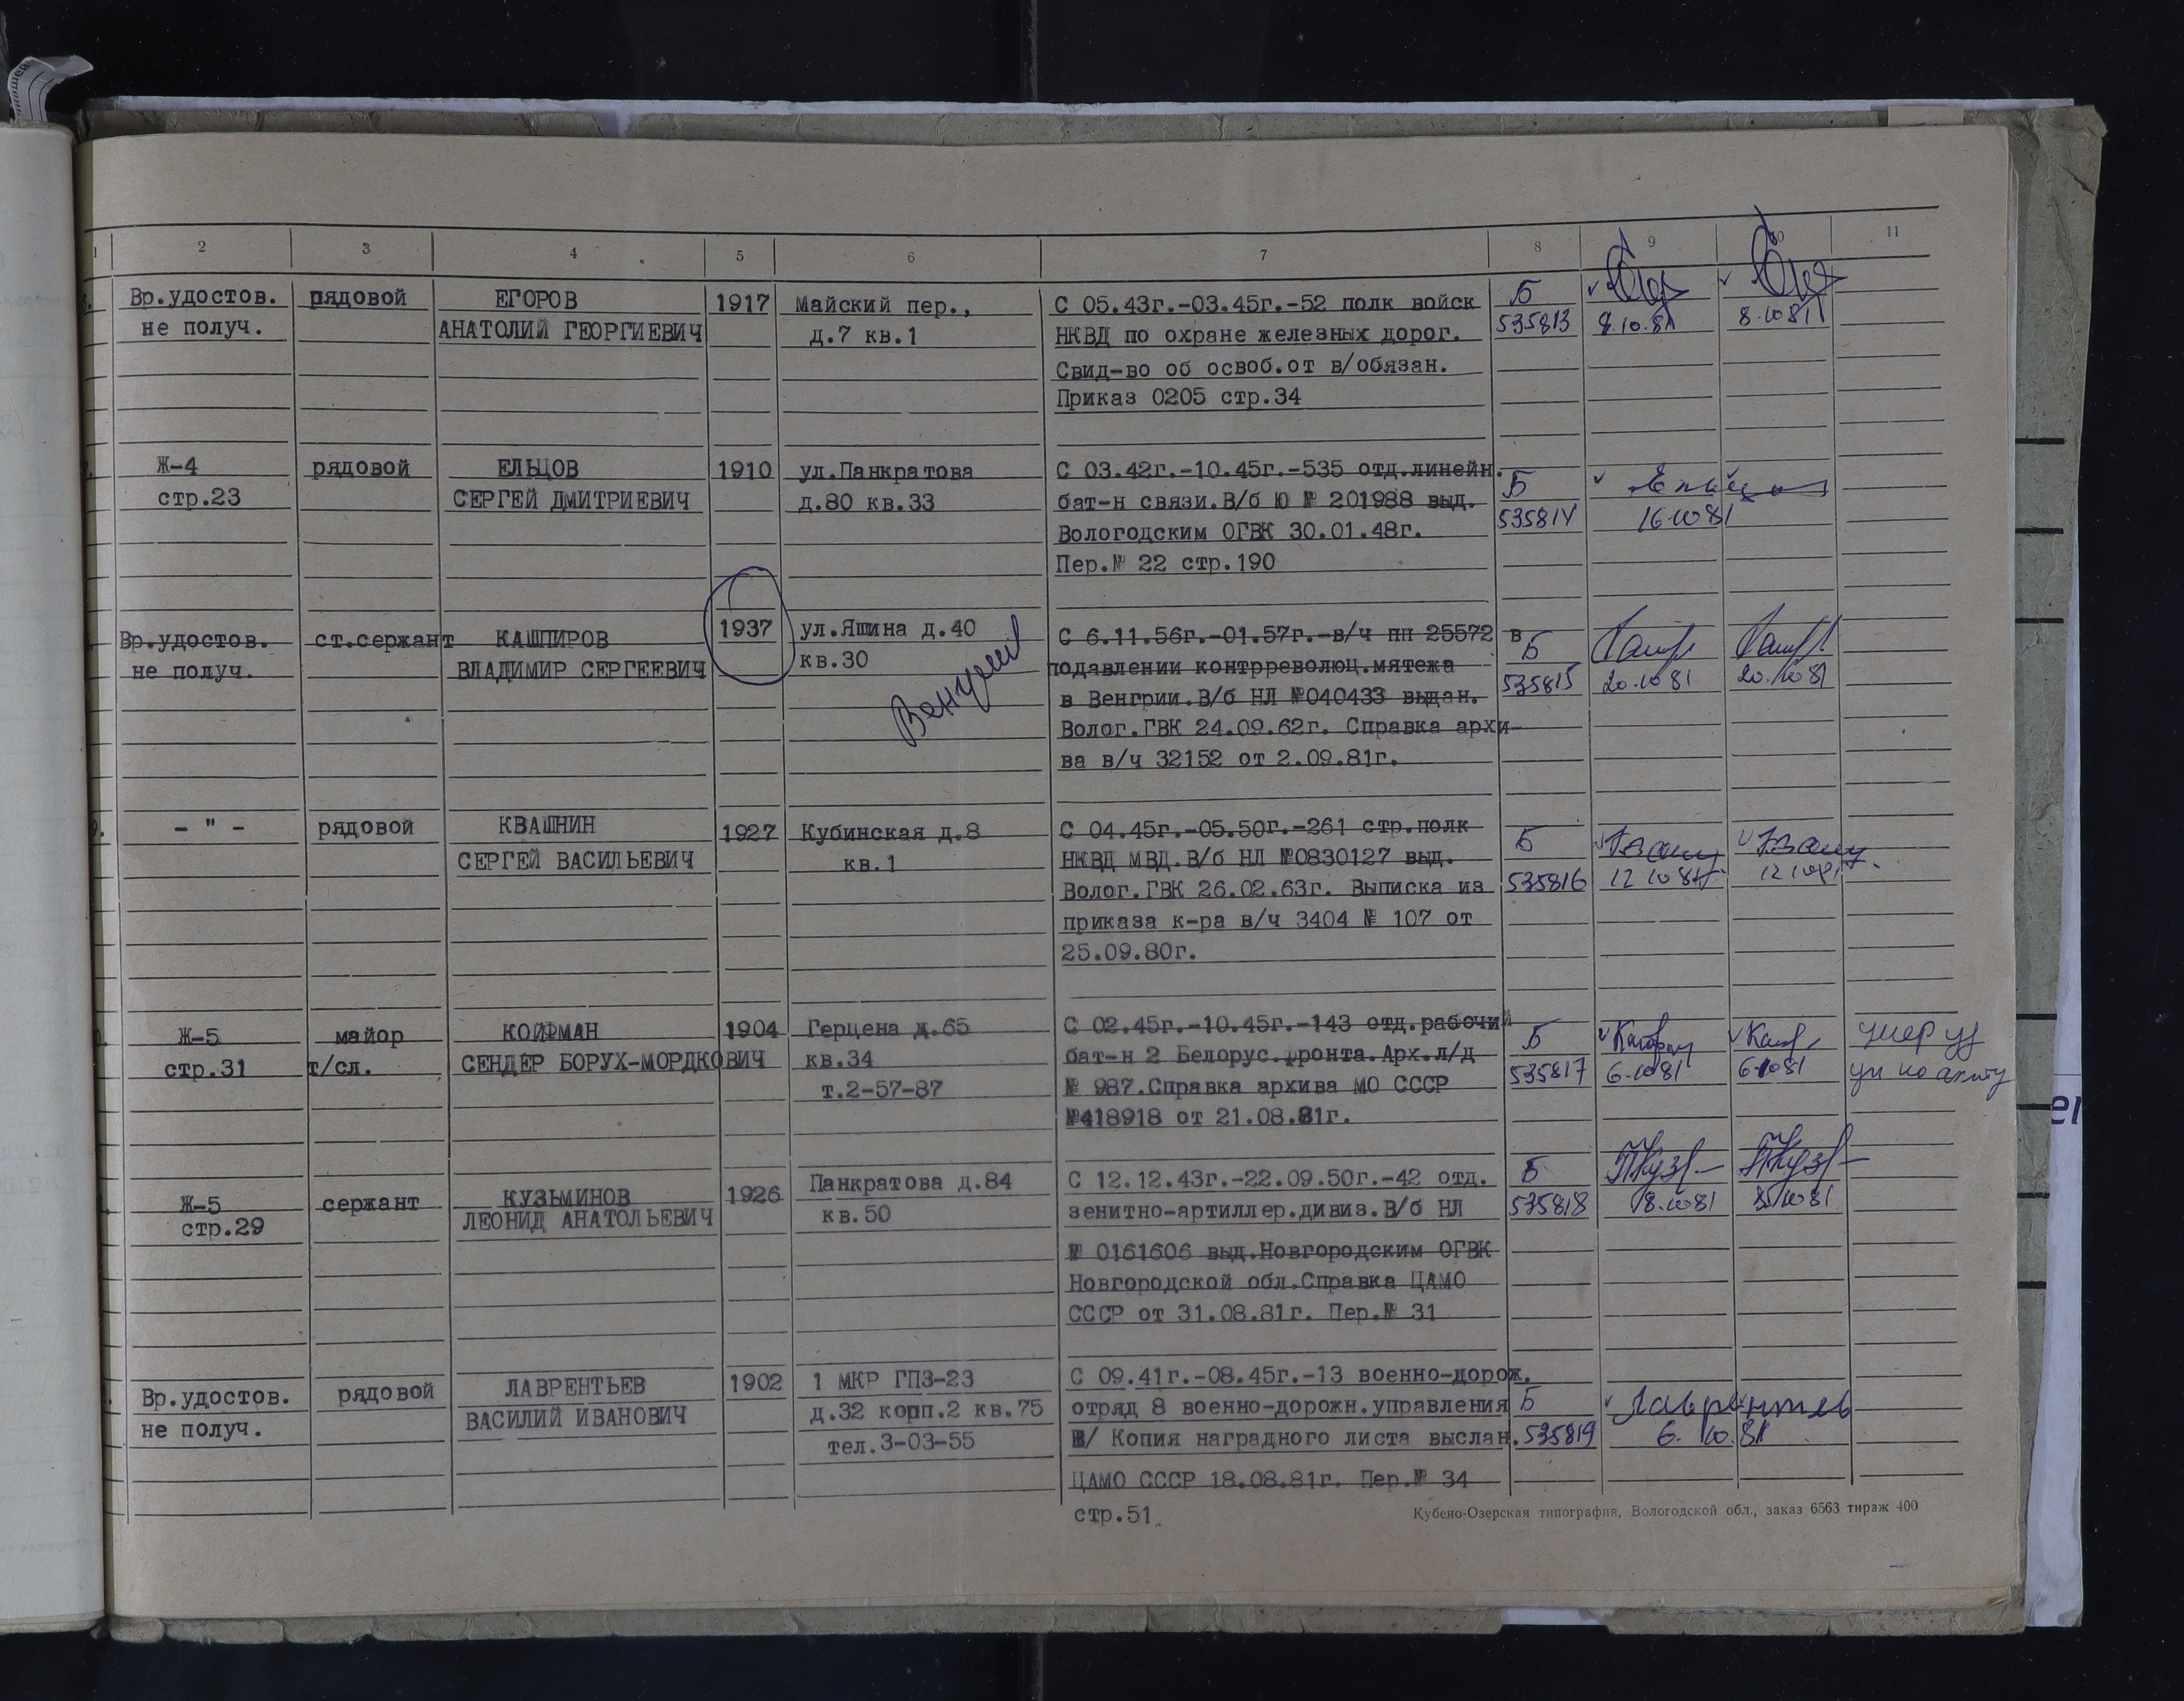 1 2 3 4 5 6 7 8 9 10 11
Вр.удостов. рядовой ЕГОРОВ 1917 Майский пер., С 05.43г.-03.45г.-52 полк войск Б
не получ. АНАТОЛИЙ ГЕОРГИЕВИЧ д.7 кв.1 НКВД по охране железных дорог. 535813 8.10.81 8.10 81
Свид-во об освоб.от в/обязан.
Приказ 0205 стр.34
Ж-4 рядовой ЕЛЬЦОВ 1910 ул.Панкратова С 03.42г.-10.45г.-535 отд.линейн. Б
стр.23 СЕРГЕЙ ДМИТРИЕВИЧ д.80 кв.33 бат-н связи.В/б Ю № 201988 выд. 535814 16 10 81
Вологодским ОГВК 30.01.48г.
Пер.№ 22 стр.190
Вр.удостов. ст.сержант КАШПИРОВ 1937 ул.Яшина д.40 С 6.11.56г.-01.57г.-в/ч пп 25572 в Б
не получ. ВЛАДИМИР СЕРГЕЕВИЧ кв.30 подавлении контрреволюц.мятежа 535815 20.10 81 20.10 81
в Венгрии.В/б НЛ №040433 выдан.
Волог.ГВК 24.09.62г. Справка архи-
ва в/ч 32152 от 2.09.81г.
- " - рядовой КВАШНИН 1927 Кубинская д.8 С 04.45г.-05.50г.-261 стр.полк Б
СЕРГЕЙ ВАСИЛЬЕВИЧ кв.1 НКВД МВД.В/б НЛ №0830127 выд. 535816 12 10 81 12 10 81
Волог.ГВК 26.02.63г. Выписка из
приказа к-ра в/ч 3404 № 107 от
25.09.80г.
Ж-5 майор КОЙФМАН 1904 Герцена д.65 С 02.45г.-10.45г.-143 отд.рабочий Б умер
стр.31 т/сл. СЕНДЕР БОРУХ-МОРДКОВИЧ кв.34 бат-н 2 Белорус.фронта.Арх.л/д 535817 6.10 81 6 10 81
т.2-57-87 № 987.Справка архива МО СССР
№418918 от 21.08.81г.
Ж-5 сержант КУЗЬМИНОВ 1926 Панкратова д.84 С 12.12.43г.-22.09.50г.-42 отд. Б
стр.29 ЛЕОНИД АНАТОЛЬЕВИЧ кв.50 зенитно-артиллер.дивиз.В/б НЛ 535818 8.10 81 8 10 81
№ 0161606 выд.Новгородским ОГВК
Новгородской обл.Справка ЦАМО
СССР от 31.08.81г. Пер.№ 31
Вр.удостов. рядовой ЛАВРЕНТЬЕВ 1902 1 МКР ГПЗ-23 С 09.41г.-08.45г.-13 военно-дорож.
не получ. ВАСИЛИЙ ИВАНОВИЧ д.32 корп.2 кв.75 отряд 8 военно-дорожн.управления Б Лаврентьев
тел.3-03-55 / Копия наградного листа выслан. 535819 6. 10. 81
ЦАМО СССР 18.08.81г. Пер.№ 34
стр.51
Кубено-Озерская типография, Вологодской обл., заказ 6563 тираж 400